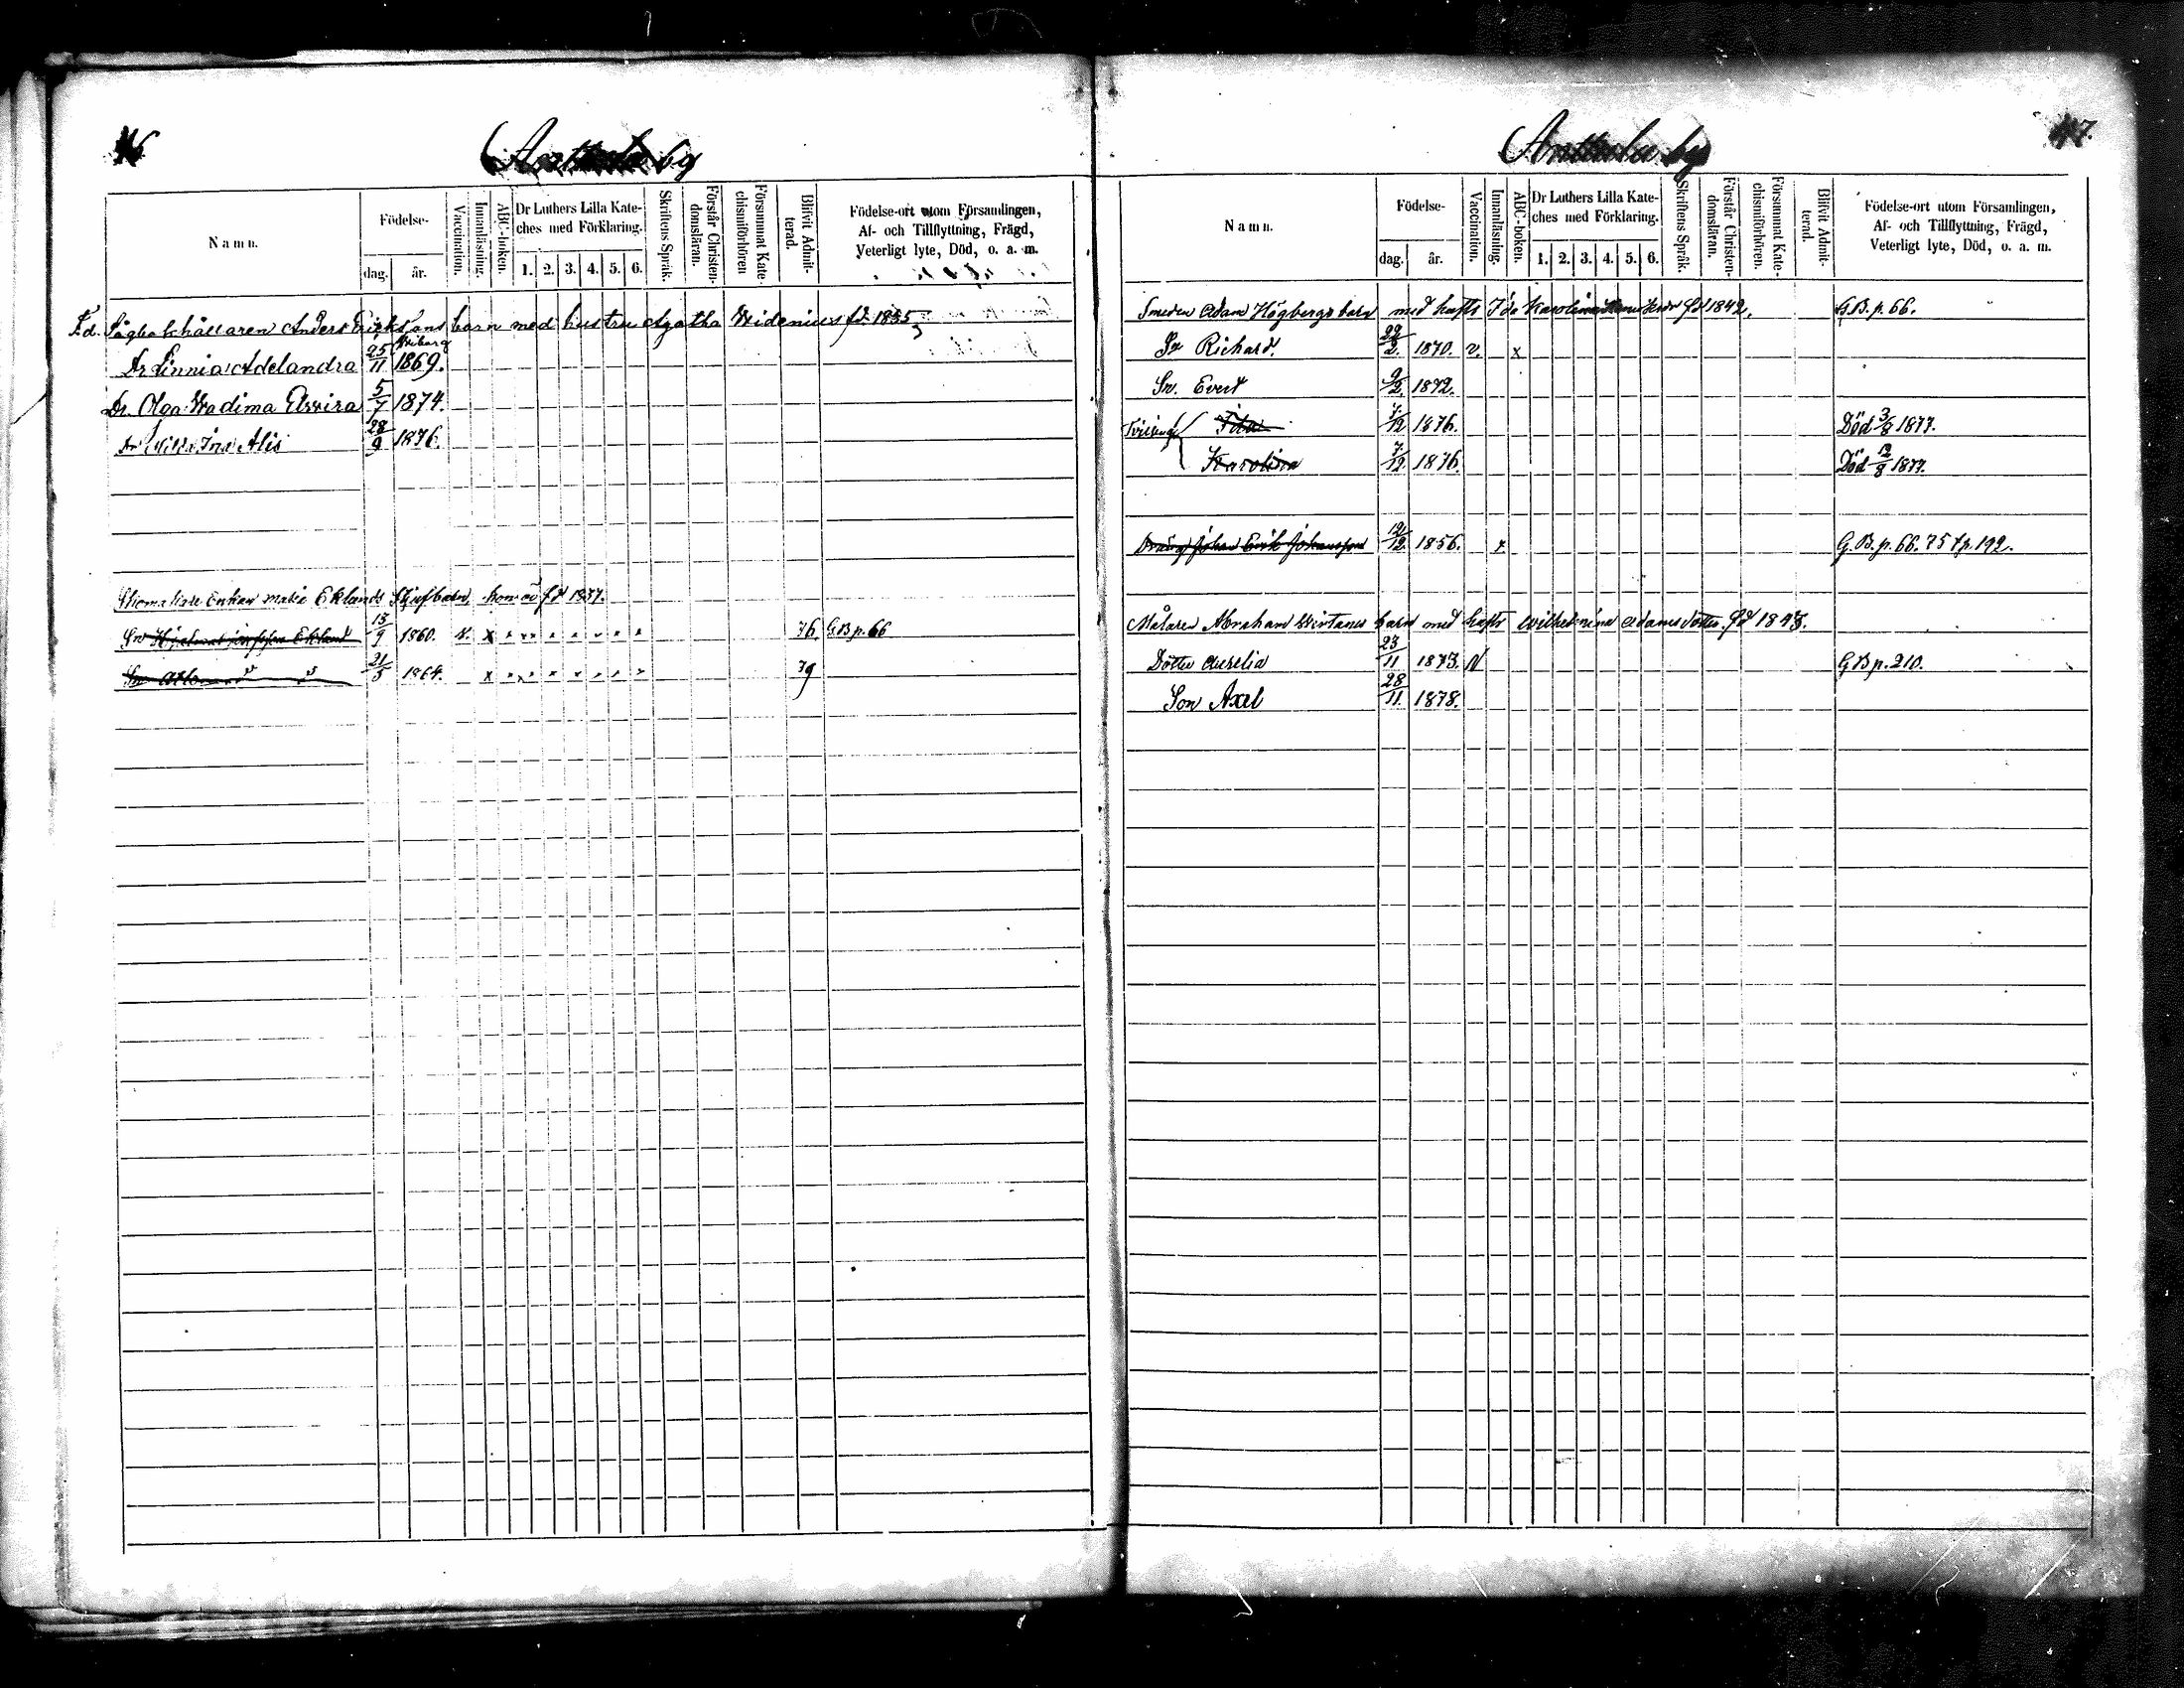 46
Anttula by
Namn.
Födelse-
dag.
år.
Vaccination.
Innanläsning.
ABC-boken.
Dr Luthers Lilla Kate-
ches med Förklaring.
1. 2. 3. 4. 5. 6.
Skriftens Språk.
Förstår Christen-
domsläran.
Försummat Kate-
chismiförhören
Blifvit Admit-
terad.
Födelse-ort utom Församlingen,
Af- och Tillflyttning, Frägd,
Veterligt lyte, Död, o. a. m.
F.d. Anders barn med hustru Agatha Widenius fd. 1835
Wiborg
Dr Linnia Adelandra 25/11 1869.
Dr. Olga Wadima Elvira 5/7 1874.
Dr Alis 28/9 1876.
Enkan Maria Eklunds Styfbarn, hon är fd 1837.
Sn Hjalmar Josefsson Eklund 13/9 1860. v. x 76 G.B p. 66
Son 21/5 1864. x 79
47.
Anttula by
Namn.
Födelse-
dag.
år.
Vaccination.
Innanläsning.
ABC-boken.
Dr Luthers Lilla Kate-
ches med Förklaring.
1. 2. 3. 4. 5. 6.
Skriftens Språk.
Förstår Christen-
domsläran.
Försummat Kate-
chismiförhören.
Blifvit Admit-
terad.
Födelse-ort utom Församlingen,
Af- och Tillflyttning, Frägd,
Veterligt lyte, Död, o. a. m.
Smeden Adam Högbergs barn med hustr Ida Karolina fd 1842. G.B. p. 66.
Sn Richard. 22/2. 1870. v. x
Sn. Evert 9/2. 1872.
Tvilling Ida 7/12 1876. Död 3/8 1877.
Karolina 7/12. 1876. Död 12/8 1877.
Dräng Johan Erik Johansson 12/12. 1856. x G.B. p. 66. 75 p. 192.
Målaren Abraham Wirtanens barn med hustr Wilhelmina Adamsdotter. fd 1848.
Dotter Aurelia 23/11 1873. v G B p. 210.
Son Axel 28/11. 1878.